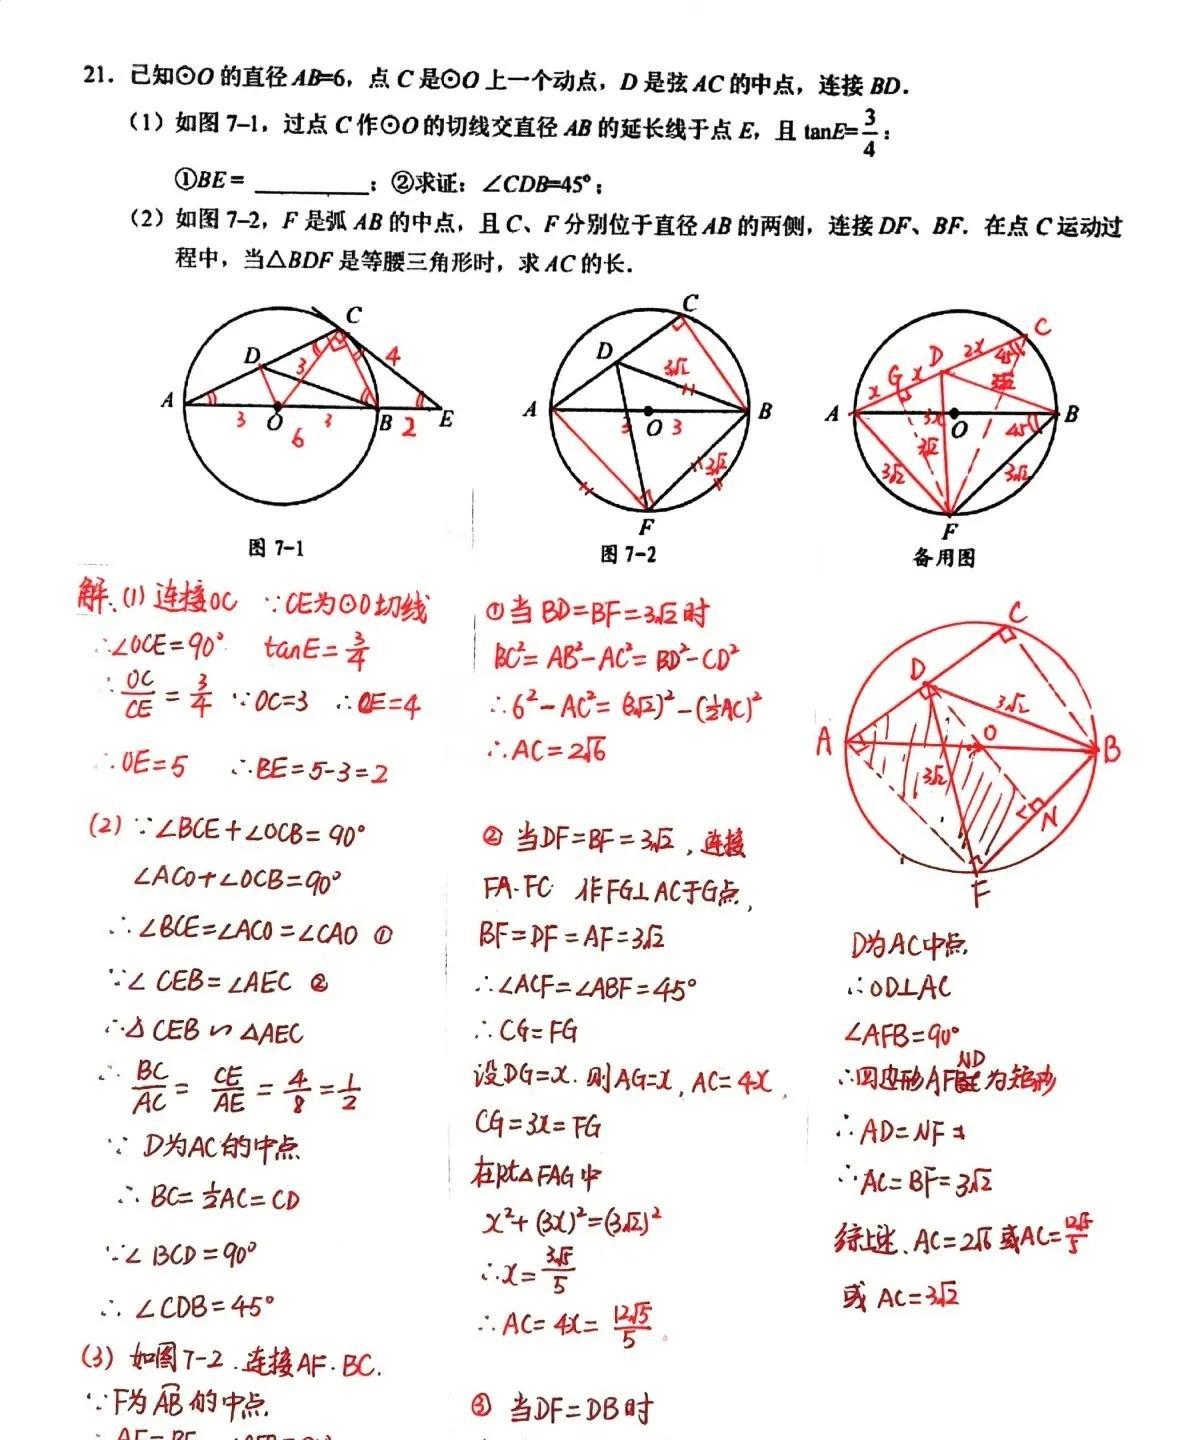 21. 已知⊙O的直径AB=6，点C是⊙O上一个动点，D是弦AC的中点，连接BD.
（1）如图7-1，过点C作⊙O的切线交直径AB的延长线于点E，且tanE=3/4；
①BE=________；②求证：∠CDB=45°；
（2）如图7-2，F是弧AB的中点，且C、F分别位于直径AB的两侧，连接DF、BF. 在点C运动过
程中，当△BDF是等腰三角形时，求AC的长.
A D C O B E 3 3 3 6 4 2
图7-1
A D C O B F 3√2 3 3 3√2
图7-2
A G D C O B F x x 2x 45° 3x 3√2 45° 3√2 3√2
备用图
解：(1) 连接OC ∵CE为⊙O切线
∴∠OCE=90° tanE=3/4
∴OC/CE=3/4 ∵OC=3 ∴CE=4
∴OE=5 ∴BE=5-3=2
(2) ∵∠BCE+∠OCB=90°
∠ACO+∠OCB=90°
∴∠BCE=∠ACO=∠CAO ①
∵∠CEB=∠AEC ②
∴△CEB∽△AEC
∴BC/AC=CE/AE=4/8=1/2
∵D为AC的中点
∴BC=½AC=CD
∵∠BCD=90°
∴∠CDB=45°
(3) 如图7-2.连接AF.BC.
∵F为AB的中点.
①当BD=BF=3√2时
BC²=AB²-AC²=BD²-CD²
∴6²-AC²=(3√2)²-(½AC)²
∴AC=2√6
②当DF=BF=3√2，连接
FA.FC 作FG⊥AC于G点，
BF=DF=AF=3√2
∴∠ACF=∠ABF=45°
∴CG=FG
设DG=x.则AG=x，AC=4x，
CG=3x=FG
在Rt△FAG中
x²+(3x)²=(3√2)²
∴x=3√5/5
∴AC=4x=12√5/5.
③当DF=DB时
A D C O B N F 3√2 3√2
D为AC中点.
∴OD⊥AC
∠AFB=90°
∴四边形AFND为矩形
∴AD=NF
∴AC=BF=3√2
综上述、AC=2√6或AC=12√5/5
或AC=3√2